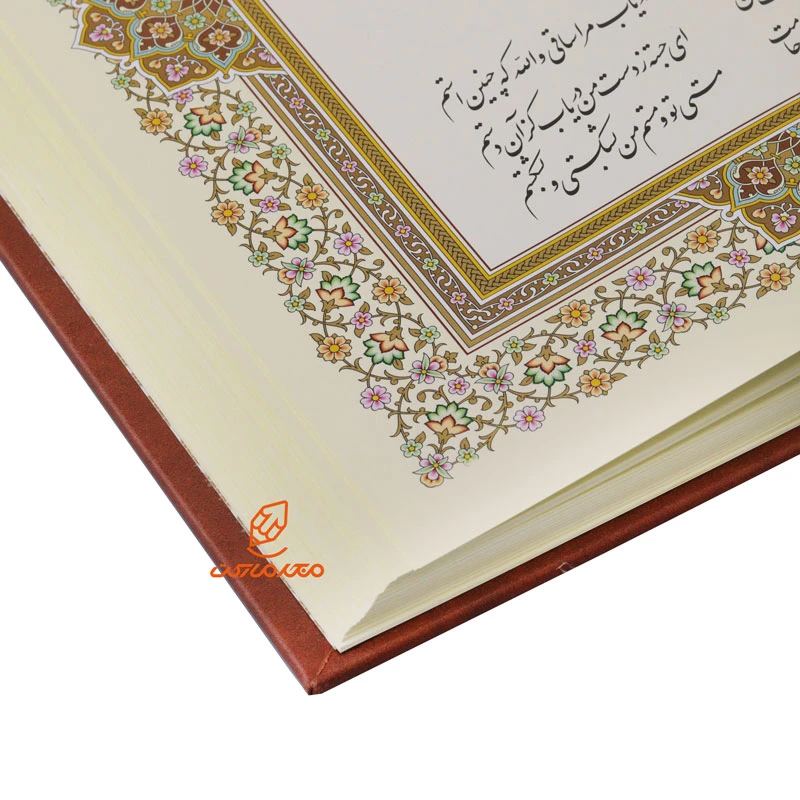 مرا ساقی والله که چنین استم
ای جسته ز دست من دریاب کز آن دستم
مستی تو و مستم من بشکستی و بشکستم